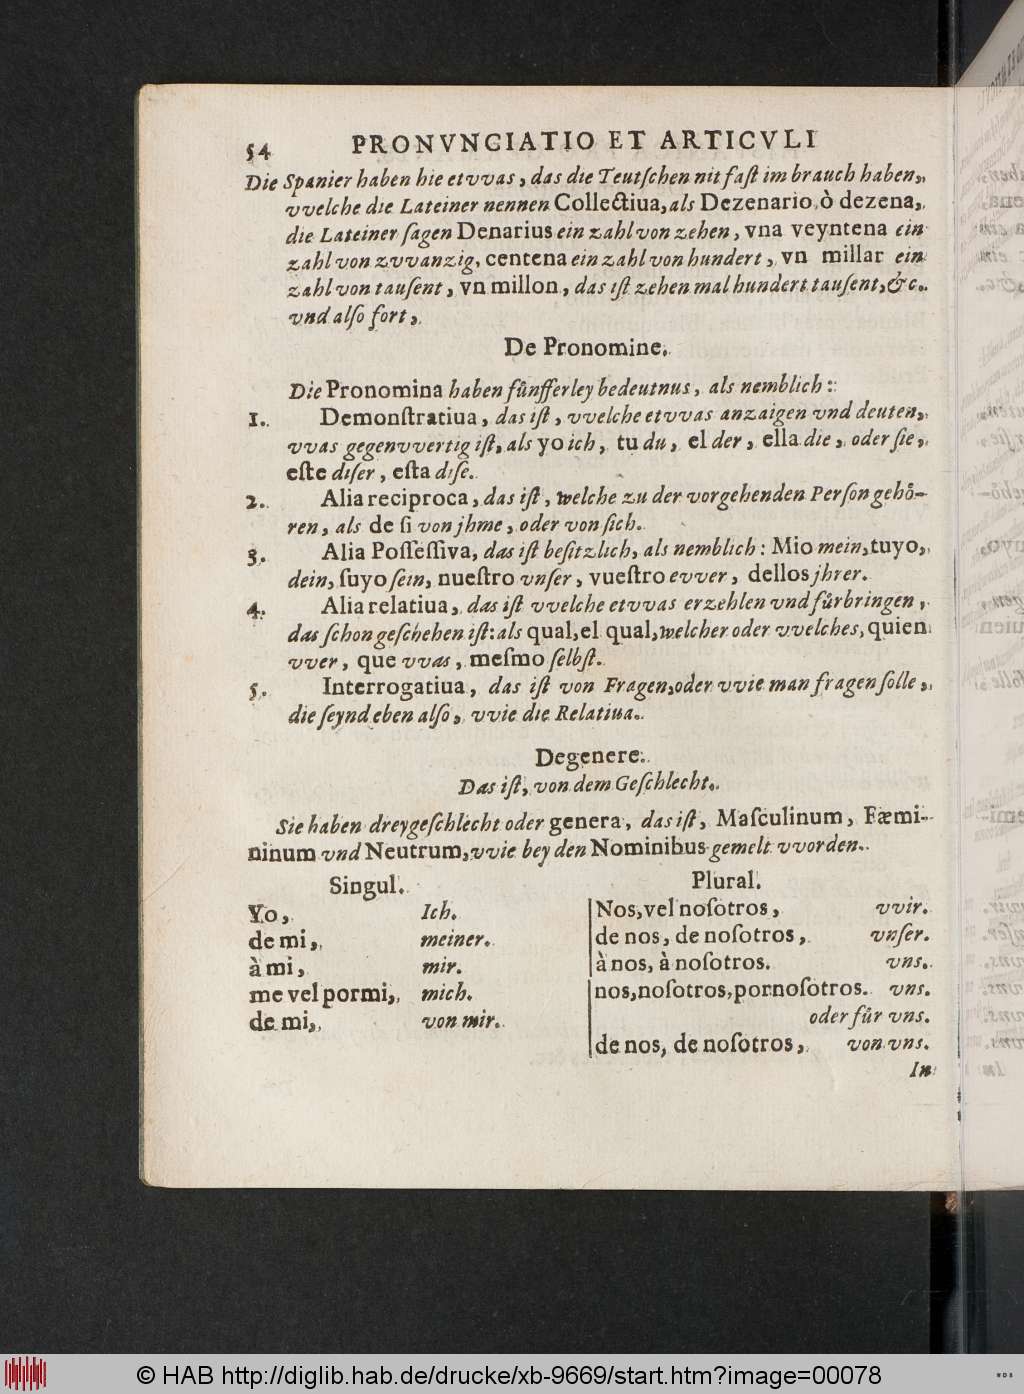 54 PRONVNCIATIO ET ARTICVLI
Die Spanier haben hie etvvas, das die Teutſchen nit faſt im brauch haben,
vvelche die Lateiner nennen Collectiua, als Dezenario, ò dezena,
die Lateiner ſagen Denarius ein zahl von zehen, vna veyntena ein
zahl von zvvanzig, centena ein zahl von hundert, vn millar ein
zahl von tauſent, vn millon, das iſt zehen mal hundert tauſent, &c.
vnd alſo fort,
De Pronomine.
Die Pronomina haben fuͤnfferley bedeutnus, als nemblich:
1. Demonſtratiua, das iſt, vvelche etvvas anzaigen vnd deuten,
vvas gegenvvertig iſt, als yo ich, tu du, el der, ella die, oder ſie,
eſte diſer, eſta diſe.
2. Alia reciproca, das iſt, welche zu der vorgehenden Perſon gehoͤ-
ren, als de ſi von jhme, oder von ſich.
3. Alia Poſſeſſiva, das iſt beſitzlich, als nemblich: Mio mein, tuyo,
dein, ſuyo ſein, nueſtro vnſer, vueſtro evver, dellos jhrer.
4. Alia relatiua, das iſt vvelche etvvas erzehlen vnd fuͤrbringen,
das ſchon geſchehen iſt: als qual, el qual, welcher oder vvelches, quien
vver, que vvas, meſmo ſelbſt.
5. Interrogatiua, das iſt von Fragen, oder vvie man fragen ſolle,
die ſeynd eben alſo, vvie die Relatiua.
De genere.
Das iſt, von dem Geſchlecht.
Sie haben drey geſchlecht oder genera, das iſt, Maſculinum, Fæmi-
ninum vnd Neutrum, vvie bey den Nominibus gemelt vvorden.
Singul. Plural.
Yo, Ich. Nos, vel noſotros, vvir.
de mi, meiner. de nos, de noſotros, vnſer.
à mi, mir. à nos, à noſotros. vns.
me vel por mi, mich. nos, noſotros, por noſotros. vns.
oder fuͤr vns.
de mi, von mir. de nos, de noſotros, von vns.
In
© HAB http://diglib.hab.de/drucke/xb-9669/start.htm?image=00078